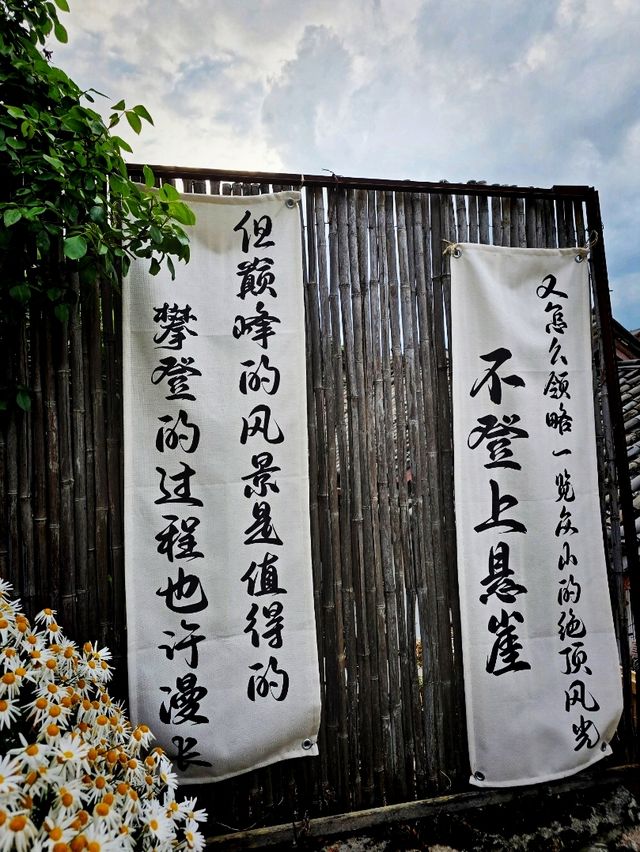 攀登的过程也许漫长
但巅峰的风景是值得的
不登上悬崖
又怎么领略一览众山的绝顶风光